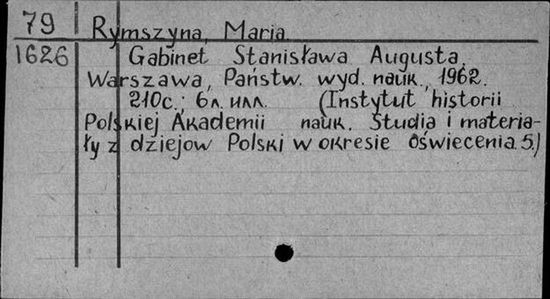 79 Rymszyna, Maria
1626 Gabinet Stanisława Augusta.
Warszawa, Państw. wyd. nauk., 1962.
210с.; 6л. илл. (Instytut historii
Polskiej Akademii nauk. Studia i materia-
ły z dziejow Polski w okresie oświecenia 5.)